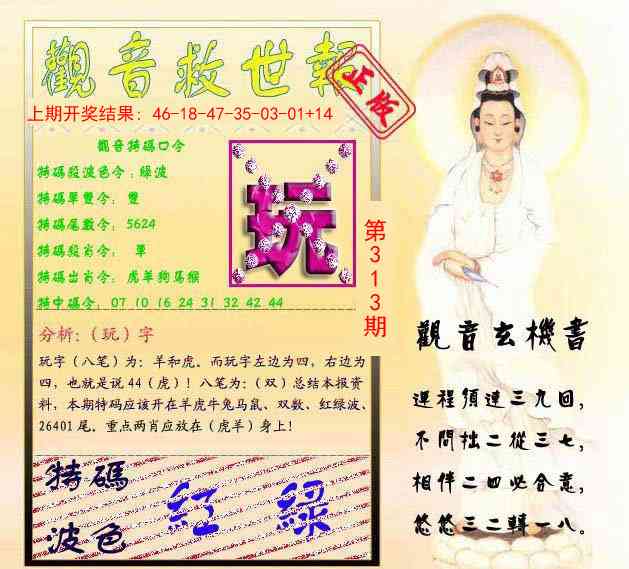 觀音救世報
正版
上期开奖结果：46-18-47-35-03-01+14
觀音特碼口令
特碼段波色令：綠波
特碼單雙令： 雙
特碼尾數令： 5624
特碼段肖令： 單
特碼出肖令： 虎羊狗馬猴
特中碼令： 07 10 16 24 31 32 42 44
玩
第313期
分析：（玩）字
玩字（八笔）为：羊和虎。而玩字左边为四，右边为
四，也就是说44（虎）！八笔为：（双）总结本报资
料，本期特码应该开在羊虎牛兔马鼠、双数、红绿波、
26401尾。重点两肖应放在（虎羊）身上！
特碼
波色
紅 綠
觀音玄機書
運程須達三九回，
不問拙二從三七，
相伴二四必合意，
悠悠三二轉一八。